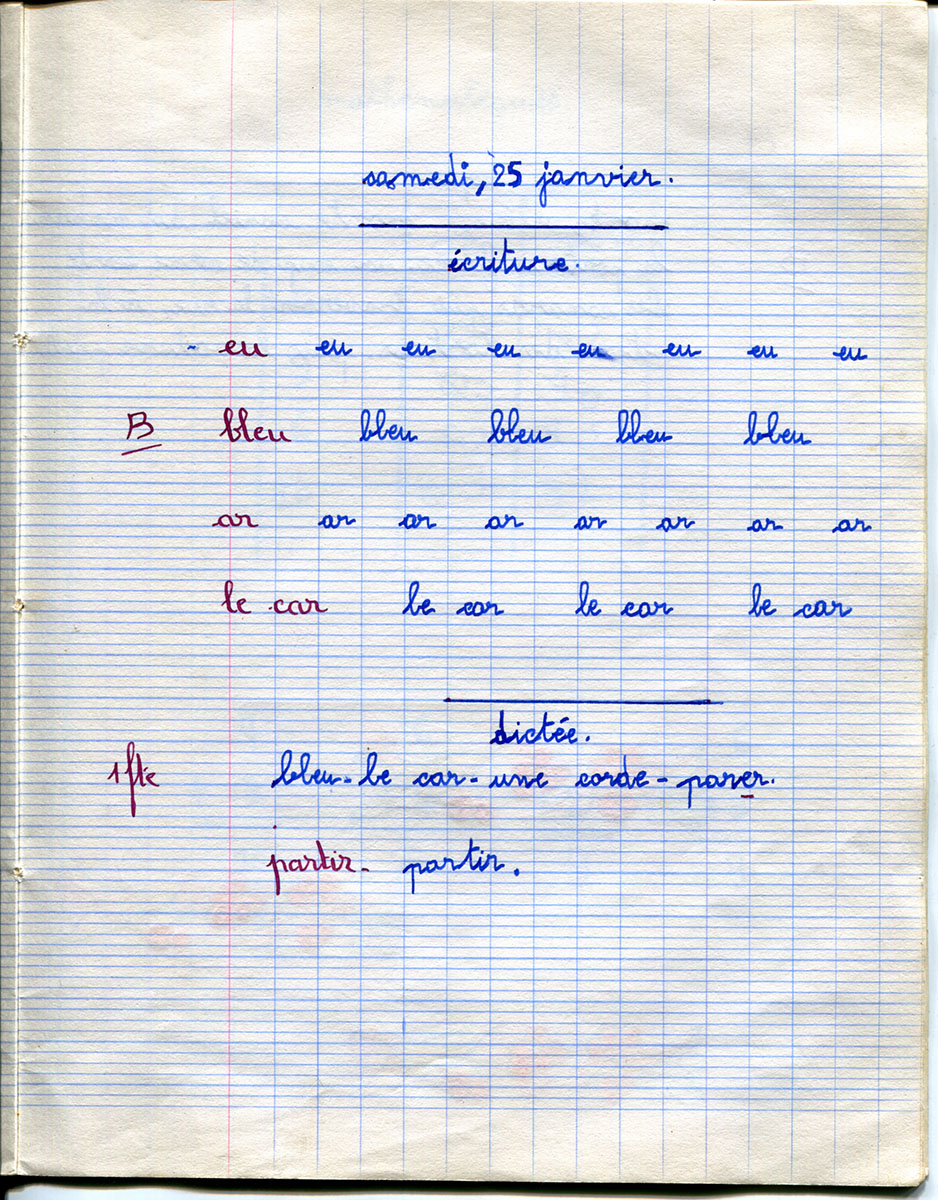 samedi, 25 janvier.
écriture.
- eu eu eu eu eu eu eu eu
B bleu bleu bleu bleu bleu
ar ar ar ar ar ar ar ar
le car le car le car le car
dictée.
1 fte bleu - le car - une corde - parer.
partir - partir.